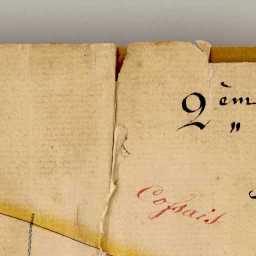 2èm
"
Cossait